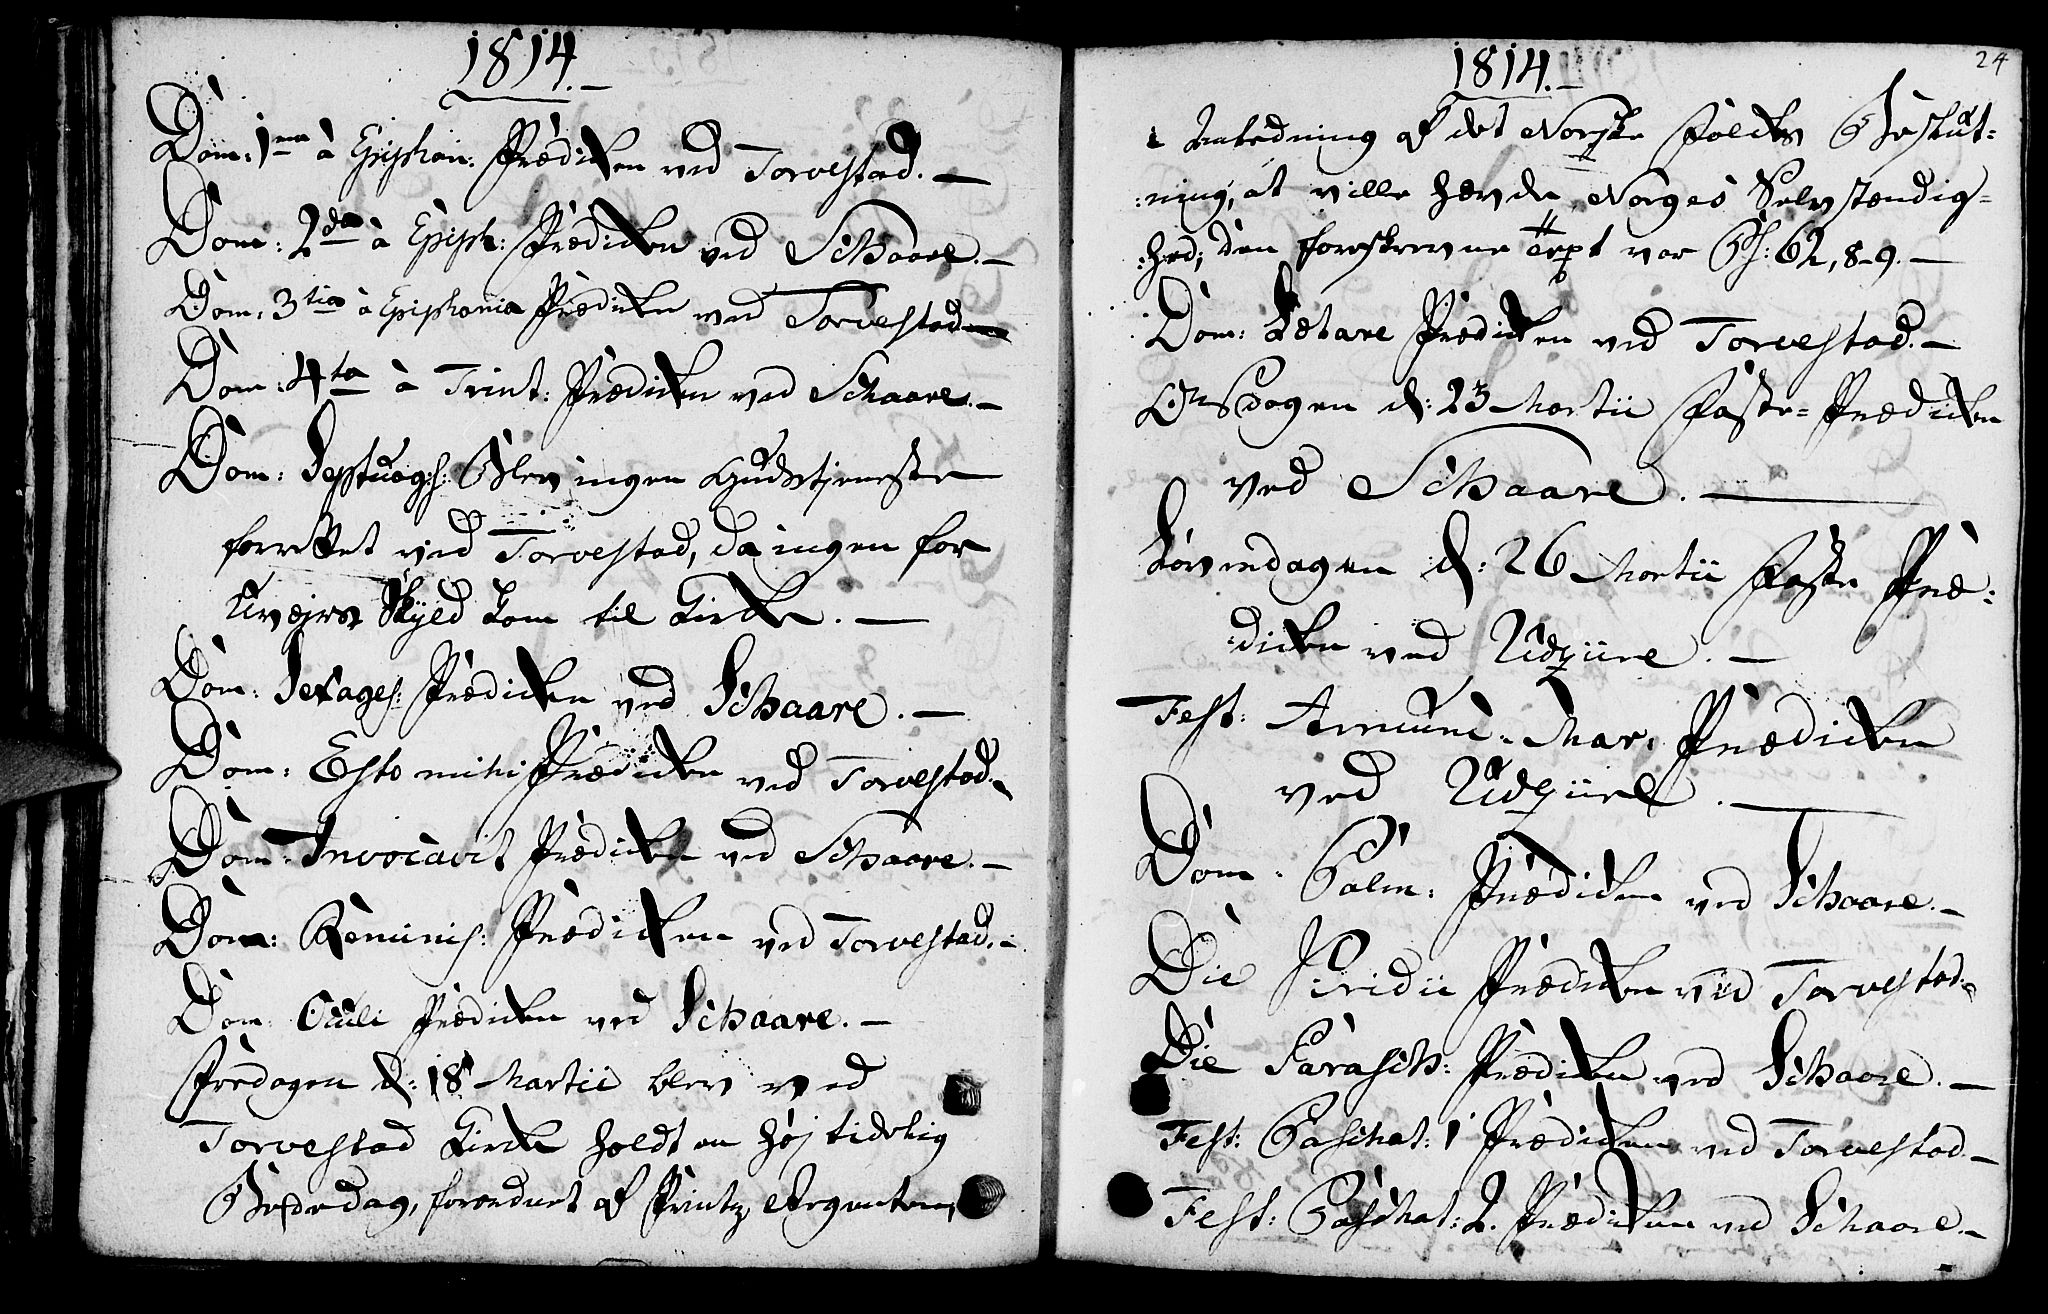 1814.
Dom: 1ma à Epiphan: Prædicken ved Torvestad.
Dom: 2da à Epiph: Prædicken ved Schaare.
Dom: 3tia à Epiphania Prædicken ved Torvestad
Dom: 4ta à Trint: Prædicken ved Schaare.
Dom: Septuages: Blev ingen Gudstjeneste
forrettet ved Torvestad, da ingen for
Uvejrs Skyld kom til Kircke.
Dom: Sexages: Prædicken ved Schaare.
Dom: Esto mihi Prædicken ved Torvestad.
Dom: Invocavit Prædicken ved Schaare.
Dom: Reminis: Prædicken ved Torvestad.
Dom: Oculi Prædicken ved Schaare.
Fredagen d: 18 Martii blev ved
Torvestad Kircke holdt en høj tidelig
Bededag, forordnet af Printz Regenten,
24
1814.
i Anledning af det Norske Folckes Beslut-
:ning, at ville hævde Norges Selvstændig-
:hed; den foreskrevne Text var Ps: 62, 8-9.
Dom: Lætare Prædicken ved Torvestad.
Onsdagen d: 23 Martii Faste-Prædicken
ved Schaare.
Løverdagen d: 26 Martii Faste Præ:
:dicken ved Udzüre.
Fest: Annunc: Mar: Prædicken
ved Udzüre.
Dom: Palm: Prædicken ved Schaare.
Die Viridii Prædicken ved Torvestad.
Die Parasch: Prædicken ved Schaare.
Fest: Paschat: 1 Prædicken ved Torvestad
Fest: Paschat: 2. Prædicken ved Schaare.